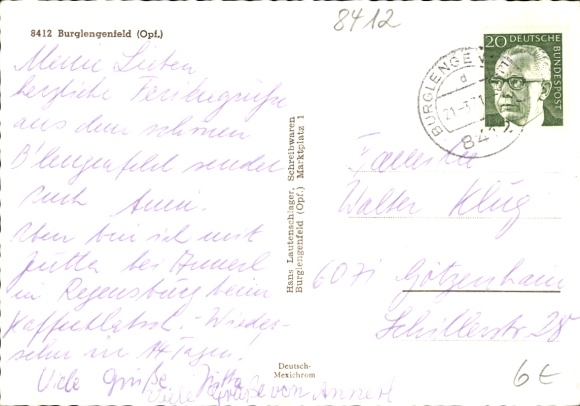 8412
8412 Burglengenfeld (Opf.)
Meine Lieben
herzliche Feriengrüße
aus dem schönen
B'lengenfeld sendet
Euch
Eben bin ich mit
Jutta bei Annerl
in Regensburg beim
Kaffeeklatsch. Wieder-
sehn in 14 Tagen.
Viele Grüße Jutta
Viele Grüße von Annerl
Hans Lautenschlager, Schreibwaren
Burglengenfeld (Opf.) Marktplatz 1
Deutsch-
Mexichrom
20 DEUTSCHE
BUNDESPOST
BURGLENGE
d
21.-7.71
841
Familie
Walter Klug
6071 Götzenhain
Schillerstr. 28
6€